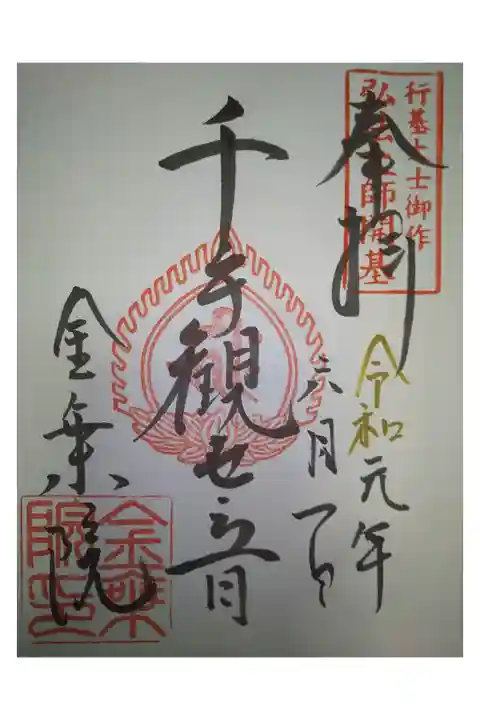 行基大士御作
弘法大師開基
奉拝
令和元年
六月一日
千手観世音
金乗院
金乗院印